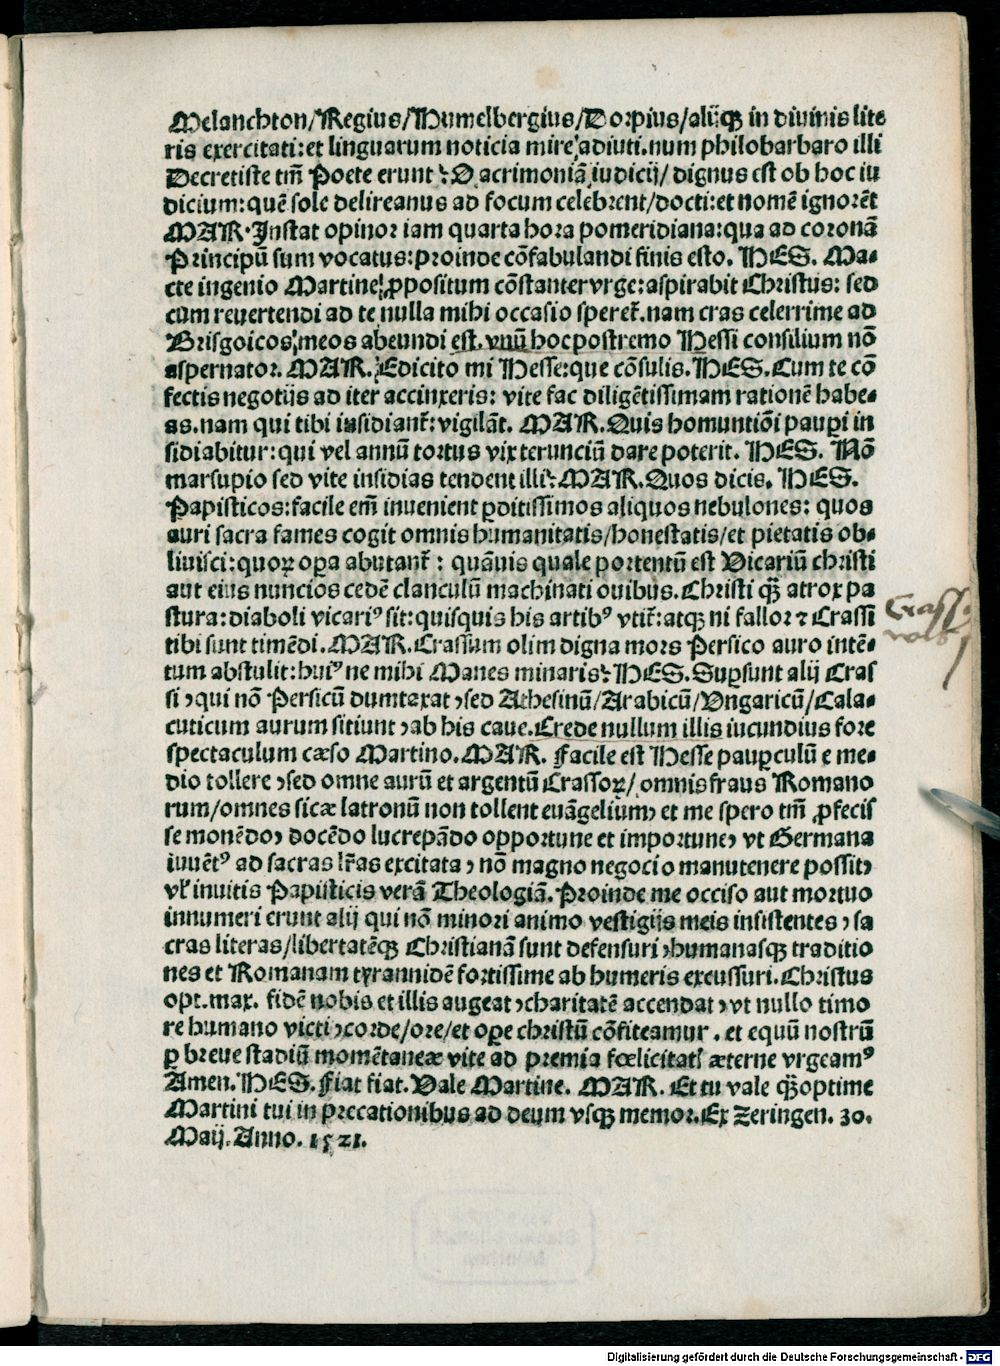 Melanchton/Regius/Humelbergius/Dorpius/alijqꝫ in diuinis lite
ris exercitati:et linguarum noticia mire adiuti.num philobarbaro illi
Decretiste tm̄ Poete erunt? O acrimoniā iudicij/ dignus est ob hoc iu
dicium:quē sole delireanus ad focum celebrent/docti:et nomē ignorēt
MAR. Instat opinor iam quarta hora pomeridiana:qua ad coronā
Principū sum vocatus:proinde cōfabulandi finis esto. HES. Ma-
cte ingenio Martine! ꝓpositum cōstanter vrge:aspirabit Christus: sed
cum reuertendi ad te nulla mihi occasio speret̄. nam cras celerrime ad
Brisgoicos meos abeundi est. vnū hoc postremo Hessi consilium nō
aspernator. MAR. Edicito mi Hesse:que cōsulis. HES. Cum te cō
fectis negotijs ad iter accinxeris: vite fac diligētissimam rationē habe-
as. nam qui tibi insidiant̄: vigilāt. MAR. Quis homuntiōi pauꝑi in
sidiabitur: qui vel annū tortus vix terunciū dare poterit. HES. Nō
marsupio sed vite insidias tendent illi? MAR. Quos dicis. HES.
Papisticos:facile em̄ inuenient ꝑditissimos aliquos nebulones: quos
auri sacra fames cogit omnis humanitatis/honestatis/et pietatis ob-
liuisci:quoꝝ oꝑa abutant̄: quāuis quale portentū est Vicariū christi
aut eius nuncios cedē clanculū machinati ouibus. Christi qꝫ atrox pa
stura:diaboli vicariꝰ sit:quisquis his artibꝰ vtit̄: atqꝫ ni fallor ⁊ Crassi
tibi sunt timēdi. MAR. Crassum olim digna mors Persico auro intē-
tum abstulit:huiꝰ ne mihi Manes minaris? HES. Suꝑsunt alij Cras
si, qui nō Persicū dumtaxat, sed Athesinū/Arabicū/Vngaricū/Cala-
cuticum aurum sitiunt, ab his caue. Crede nullum illis iucundius fore
spectaculum cæso Martino. MAR. Facile est Hesse pauꝑculū e me-
dio tollere, sed omne aurū et argentū Crassoꝝ/ omnis fraus Romano
rum/omnes sicæ latronū non tollent euāgelium, et me spero tm̄ ꝓfecis
se monēdo, docēdo Iucrepādo opportune et importune, vt Germana
iuuētꝰ ad sacras lr̄as excitata, nō magno negocio manutenere possit,
vl' inuitis Papisticis verā Theologiā. Proinde me occiso aut mortuo
innumeri erunt alij qui nō minori animo vestigijs meis insistentes, sa
cras literas/libertatēqꝫ Christianā sunt defensuri, humanasqꝫ traditio
nes et Romanam tyrannidē fortissime ab humeris excussuri. Christus
opt. max. fidē nobis et illis augeat, charitatē accendat, vt nullo timo
re humano victi, corde/ore/et oꝑe christū cōfiteamur. et equū nostrū
ꝑ breue stadiū momētaneæ vite ad premia fœlicitatꝭ æterne vrgeamꝰ
Amen. HES. Fiat fiat. Vale Martine. MAR. Et tu vale qꝫoptime
Martini tui in precationibus ad deum vsqꝫ memor. Ex Zeringen. 30.
Maij. Anno. 1521.
Digitalisierung gefördert durch die Deutsche Forschungsgemeinschaft - DFG